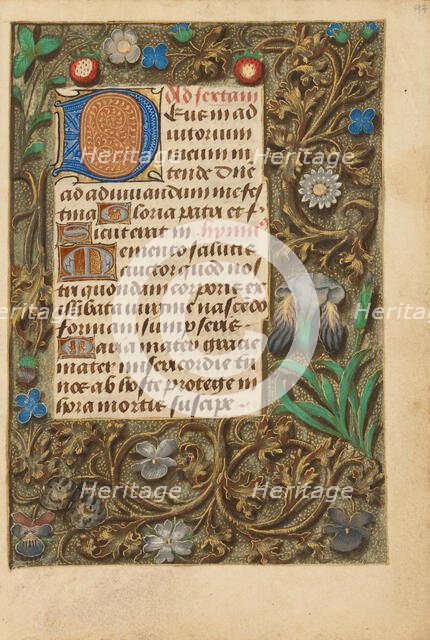 97
Ad sextam
Deus in ad
iutorium
meum in
tende Dne
ad adiuvandum me fes
tina Gloria patri et f.
Sicut erat in hpmnus
Memento salutis
auctor quod nos
tri quondam corporis ex
illibata virgine nascedo
formam sumpseris
Maria mater gracie
mater misericordie tu
nos ab hoste protege in
hora mortis suscipe
Heritage
Heritage
Heritage
Heritage
Heritage
Heritage
Heritage
Heritage
C